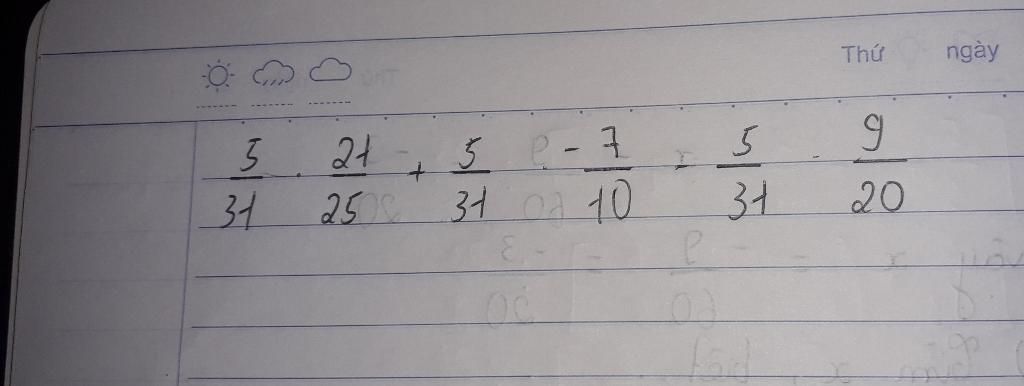 Thứ ngày
5/31 . 21/25 + 5/31 . -7/10 - 5/31 . 9/20